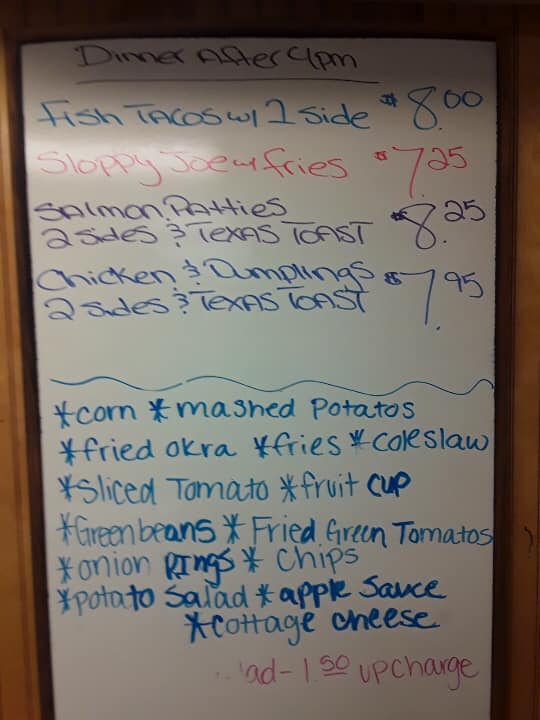 Dinner After 4pm
Fish Tacos w/ 2 Side $8.00
Sloppy Joe w/ fries $7.25
Salmon Patties
2 sides & Texas Toast $8.25
Chicken & Dumplings
2 sides & Texas Toast $7.95
*corn *mashed Potatos
*fried okra *fries *coleslaw
*Sliced Tomato *fruit cup
*Greenbeans *Fried Green Tomatos
*onion Rings * Chips
*potato Salad *apple Sauce
*cottage cheese
- 1.50 upcharge